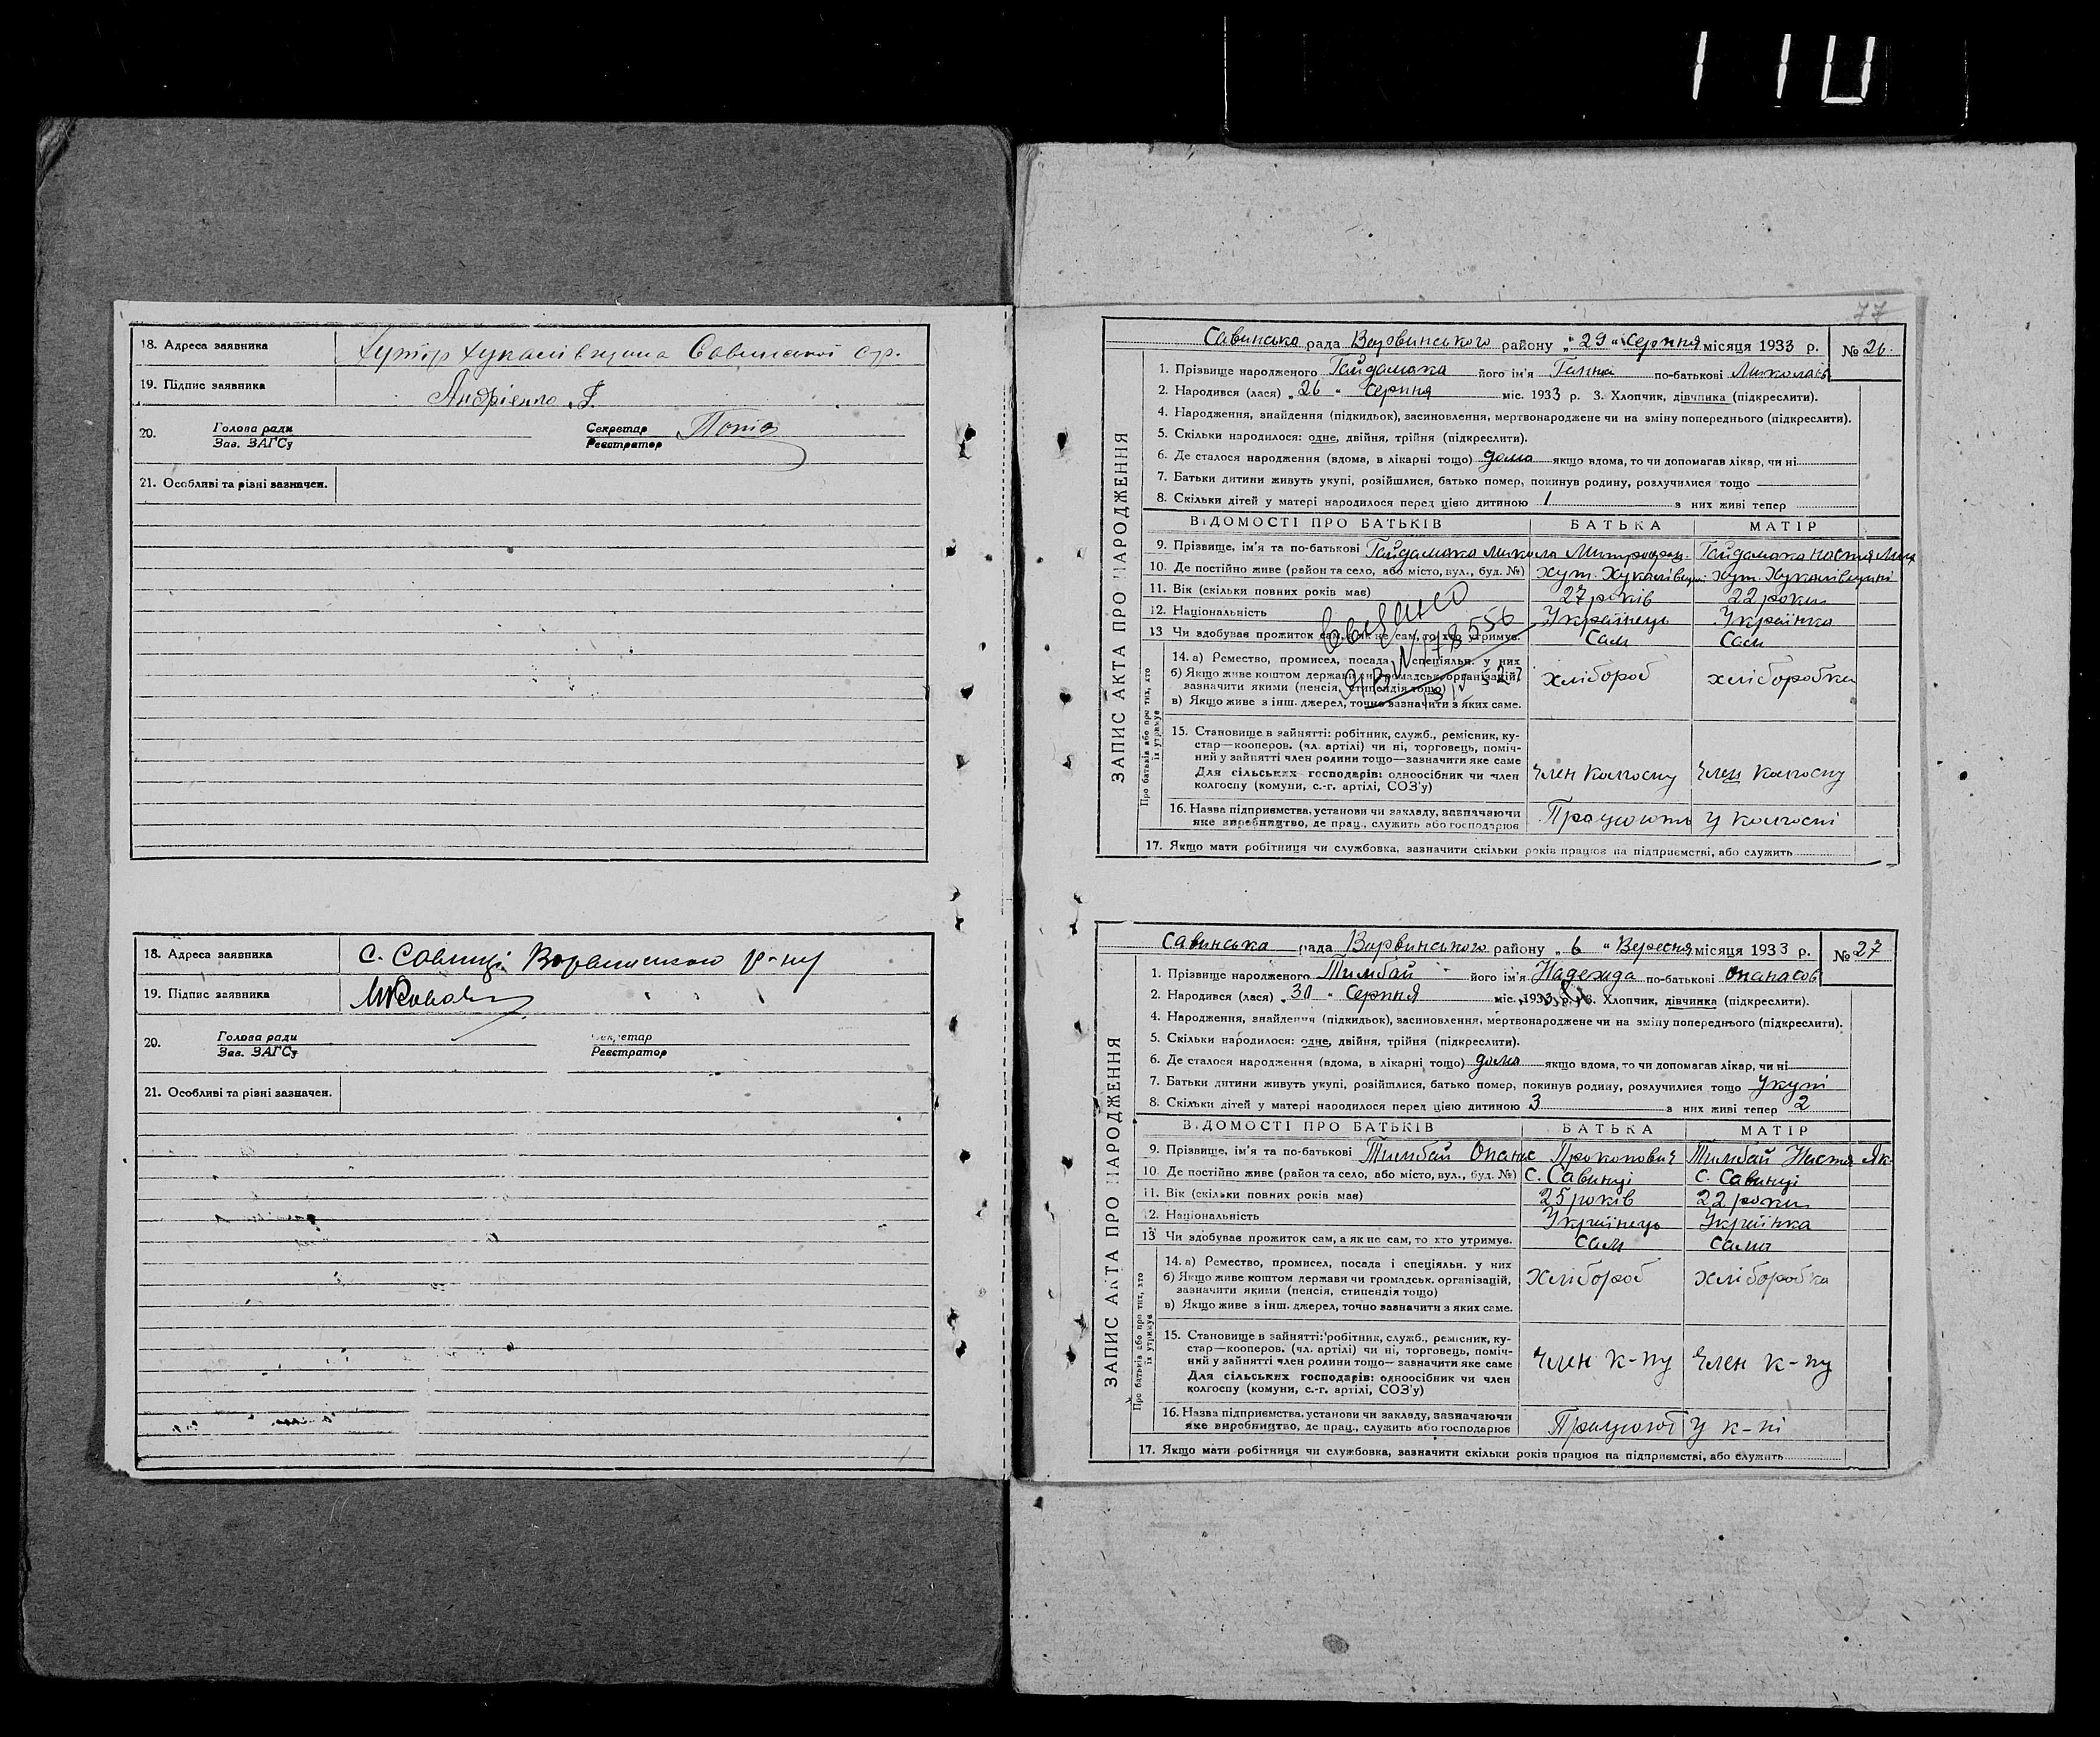 110
18. Адреса заявника Хутір Хукалівщина Савинської с.р.
19. Підпис заявника Андрієнко
20. Голова ради
Зав. ЗАГСу
Секретар
Реєстратор
21. Особливі та різні зазначен.
18. Адреса заявника С. Савинці Варвинського р-ну
19. Підпис заявника
20. Голова ради
Зав. ЗАГСу
Секретар
Реєстратор
21. Особливі та різні зазначен.
77
Савинська рада Варвинського району „29" Серпня місяця 1933 р. № 26.
ЗАПИС АКТА ПРО НАРОДЖЕННЯ
1. Прізвище народженого Гайдамака його ім'я Ганна по-батькові Миколаїв
2. Народився (лася) „26" Серпня міс. 1933 р. 3. Хлопчик, дівчинка (підкреслити).
4. Народження, знайдення (підкидьок), засиновлення, мертвонароджене чи на зміну попереднього (підкреслити).
5. Скільки народилося: одне, двійня, трійня (підкреслити).
6. Де сталося народження (вдома, в лікарні тощо) дома якщо вдома, то чи допомагав лікар, чи ні
7. Батьки дитини живуть укупі, розійшлися, батько помер, покинув родину, розлучилися тощо
8. Скільки дітей у матері народилося перед цією дитиною 1 з них живі тепер
ВІДОМОСТІ ПРО БАТЬКІВ БАТЬКА МАТІР
9. Прізвище, ім'я та по-батькові Гайдамака Микола Митрофан. Гайдамака Настя
10. Де постійно живе (район та село, або місто, вул., буд. №) хут. Хукалівщ. хут. Хукалівщині
11. Вік (скільки повних років має) 27 років 22 роки
12. Національність Українець Українка
13 Чи здобував прожиток сам, а як не сам, то хто утримує. Сам Сам
Про батьків або про тих, хто їх утримує
14. а) Ремество, промисел, посада і спеціяльн. у них
б) Якщо живе коштом держави чи громадськ. організацій,
зазначити якими (пенсія, стипендія тощо)
хлібороб хліборобка
в) Якщо живе з інш. джерел, точно зазначити з яких саме.
15. Становище в зайнятті: робітник, служб., ремісник, ку-
стар—кооперов. (чл. артілі) чи ні, торговець, поміч-
ний у зайнятті член родини тощо—зазначити яке саме
Для сільських господарів: одноосібник чи член
колгоспу (комуни, с.-г. артілі, СОЗ'у)
Член колгоспу Член колгоспу
16. Назва підприємства, установи чи закладу, зазначаючи
яке виробництво, де прац., служить або господарює
Працюють у колгоспі
17. Якщо мати робітниця чи службовка, зазначити скільки років працює на підприємстві, або служить
Савинська рада Варвинського району „6" Вересня місяця 1933 р. № 27
ЗАПИС АКТА ПРО НАРОДЖЕННЯ
1. Прізвище народженого Тимбай його ім'я Надежда по-батькові Опанасов
2. Народився (лася) „30" Серпня міс. 1933 р. 3. Хлопчик, дівчинка (підкреслити).
4. Народження, знайдення (підкидьок), засиновлення, мертвонароджене чи на зміну попереднього (підкреслити).
5. Скільки народилося: одне, двійня, трійня (підкреслити).
6. Де сталося народження (вдома, в лікарні тощо) дома якщо вдома, то чи допомагав лікар, чи ні
7. Батьки дитини живуть укупі, розійшлися, батько помер, покинув родину, розлучилися тощо Укупі
8. Скільки дітей у матері народилося перед цією дитиною 3 з них живі тепер 2
ВІДОМОСТІ ПРО БАТЬКІВ БАТЬКА МАТІР
9. Прізвище, ім'я та по-батькові Тимбай Опанас Прокопович Тимбай Настя Як.
10. Де постійно живе (район та село, або місто, вул., буд. №) С. Савинці С. Савинці
11. Вік (скільки повних років має) 25 років 22 роки
12. Національність Українець Українка
13 Чи здобував прожиток сам, а як не сам, то хто утримує. Сам Сама
Про батьків або про тих, хто їх утримує
14. а) Ремество, промисел, посада і спеціяльн. у них
б) Якщо живе коштом держави чи громадськ. організацій,
зазначити якими (пенсія, стипендія тощо)
хлібороб хліборобка
в) Якщо живе з інш. джерел, точно зазначити з яких саме.
15. Становище в зайнятті: робітник, служб., ремісник, ку-
стар—кооперов. (чл. артілі) чи ні, торговець, поміч-
ний у зайнятті член родини тощо—зазначити яке саме
Для сільських господарів: одноосібник чи член
колгоспу (комуни, с.-г. артілі, СОЗ'у)
Член к-пу Член к-пу
16. Назва підприємства, установи чи закладу, зазначаючи
яке виробництво, де прац., служить або господарює
Працюют у к-пі
17. Якщо мати робітниця чи службовка, зазначити скільки років працює на підприємстві, або служить